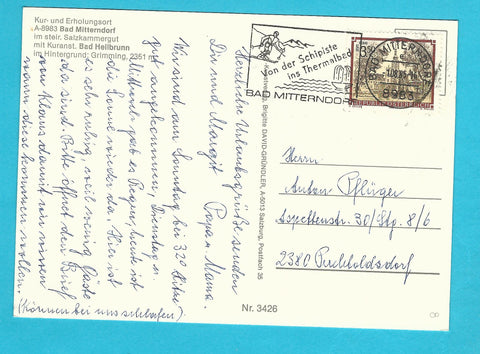 Kur- und Erholungsort
A-8983 Bad Mitterndorf
im steir. Salzkammergut
mit Kuranst. Bad Heilbrunn
im Hintergrund: Grimming, 2351 m
Von der Schipiste
ins Thermalbad
BAD MITTERNDORF
8983
REPUBLIK ÖSTERREICH
Herzliche Urlaubsgrüße senden
Dir und Margit Papa + Mama.
Wir sind am Sonntag bei 32° Hitze
gut angekommen, Dienstag u.
Mittwoch gab es Regen, heute ist
die Sonne wieder da. Hier ist
es sehr ruhig, weil wenig Gäste
da sind. Bitte öffnet den Brief
von Klaus damit wir wissen
wann diese kommen wollen.
(Können bei uns schlafen)
Brigitte DAVID-GRÜNDLER, A-5013 Salzburg, Postfach 35
Herrn
Anton Pflüger
Aspettenstr. 30/Stg. 8/6
2380 Perchtoldsdorf
Nr. 3426